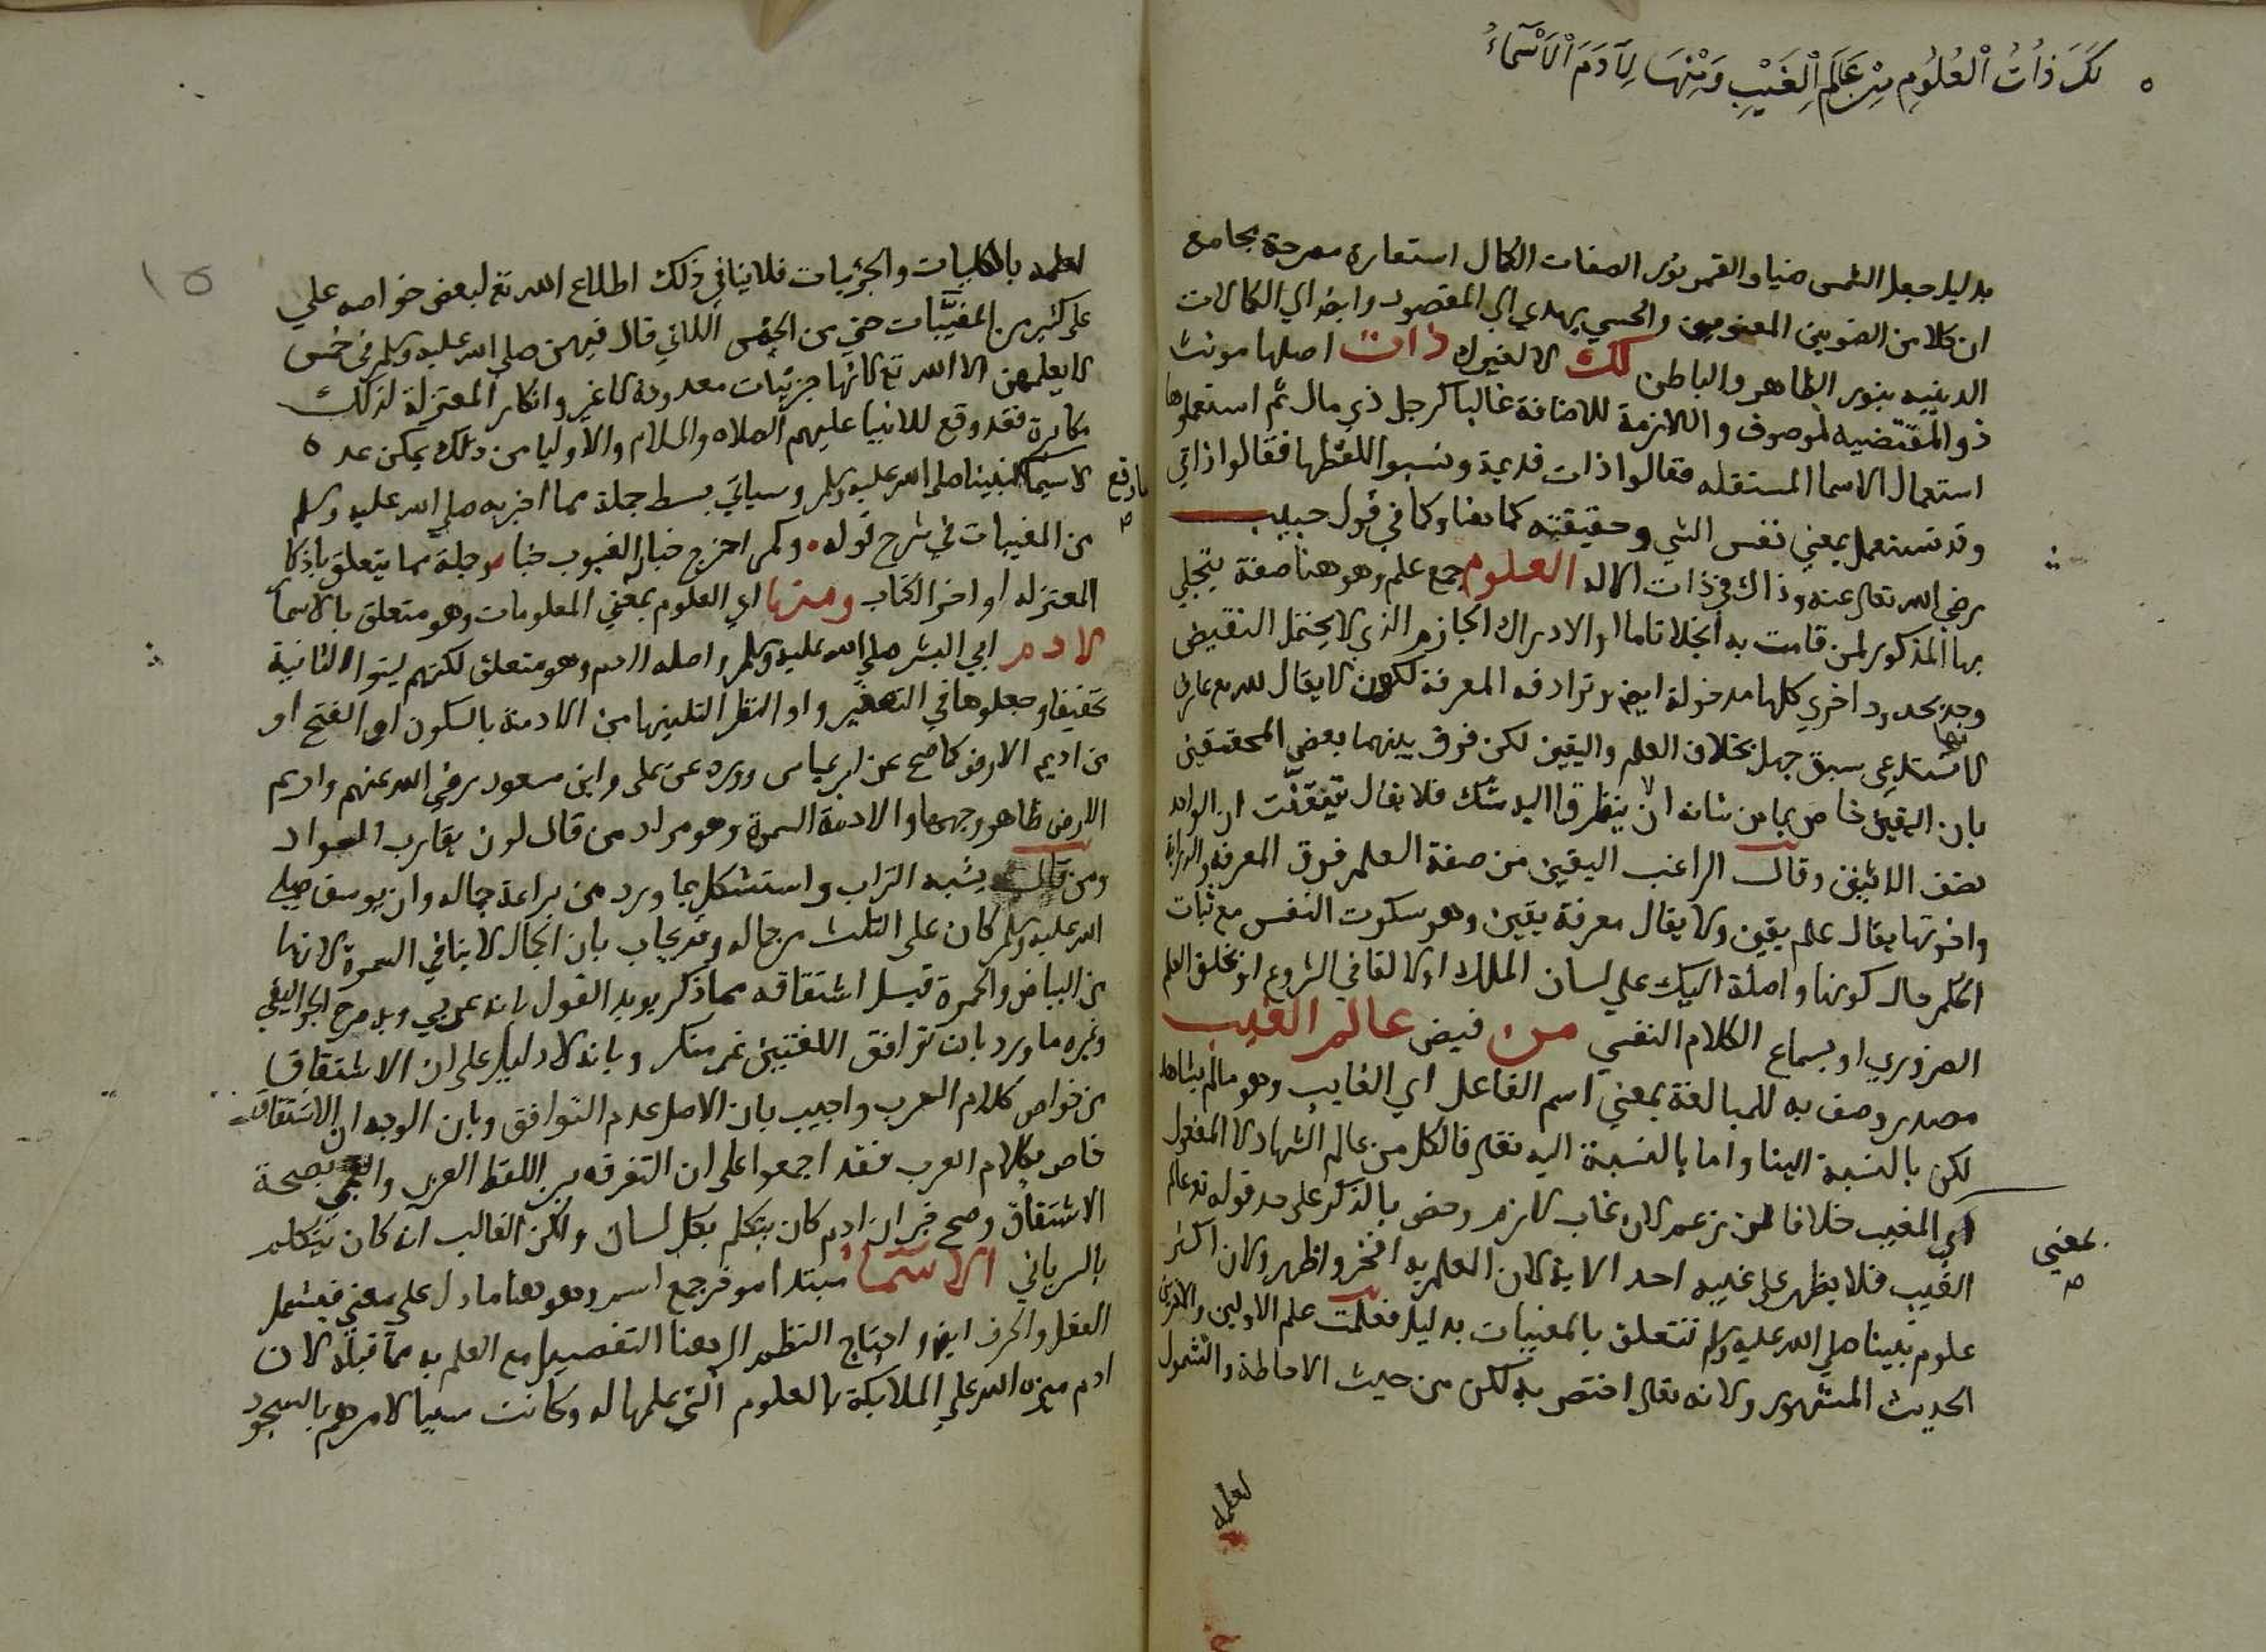 لَكَ ذَاتُ الْعُلُومِ مِنْ عَالَمِ الْغَيْبِ وَمِنْهَا لِآدَمَ الْأَسْمَاءُ
بدليل جعل الشمس ضيا والقمر نورا لصفات الكمال استعارة مصرحة بجامع
ان كلا من الضوين المعنوي والحسي يهدي الي المقصود وايضا الي الكمالات
الدينيه بنور الظاهر والباطن لك لا لغيرك ذات اصلها مونث
ذو المقتضيه لموصوف واللازمة للاضافة غالبا كرجل ذي مال ثم استعملوها
استعمال الاسما المستقله فقالوا ذات قديمة ونسبوا اللفظها فقالوا ذاتي
وقد تستعمل بمعني نفس الشي وحقيقته كما هنا وكما في قول حبيب
رضي الله تعالى عنه وذاك في ذات الاله العلوم جمع علم وهو هنا صفة يتجلي
بها المذكور لمن قامت به انجلا تاما او الادراك الجازم الذي لا يحتمل النقيض
وحد بحدود اخري كلها مدخولة ايضا وترادفه المعرفة لكن لا يقال لله تع عارف
لانها تستدعي سبق جهل بخلاف العلم واليقين لكن فرق بينهما بعض المحققين
بان اليقين خاص بما من شانه ان لا يتطرق اليه شك فلا يقال تيقنت ان الواحد
نصف الاثنين وقال الراغب اليقين من صفة العلم فوق المعرفة والدراية
واخوتها يقال علم يقين ولا يقال معرفة يقين وهو سكون النفس مع ثبات
الحكم حال كونها واصلة اليك علي لسان الملك او بالقا في الروع او بخلق العلم
الضروري او بسماع الكلام النفسي من فيض عالم الغيب
مصدر وصف به للمبالغة بمعني اسم الفاعل اي الغايب وهو ما لم يشاهد
لكن بالنسبة الينا واما بالنسبة اليه تعالى فالكل من عالم الشهادة لا المفعول
اي المغيب خلافا لمن زعم لان غاب لازم وخص بالذكر على حد قوله تع عالم
بمعني
الغيب فلا يظهر على غيبه احد الاية لان العلم به افخر واظهر ولان اكثر
علوم نبينا صلي الله عليه وسلم تتعلق بالمغيبات بدليل فعلمت علم الاولين والاخرين
الحديث المشهور ولانه تعالى اختص به لكن من حيث الاحاطة والشمول
لعلمه
١٥
لعلمه بالكليات والجزئيات فلا ينافي ذلك اطلاع الله تع لبعض خواصه علي
على كثير من المغيبات حتي من الخمس اللاتي قال فيهن صلي الله عليه وسلم في خمس
لا يعلمهن الا الله تع لانها جزئيات معدودة لا غير وانكار المعتزلة لذلك
مكابرة فقد وقع للانبيا عليهم الصلاه والسلام والاوليا من ذلك ما لا يمكن عده
لا سيما ما وقع لنبينا صلي الله عليه وسلم وسياتي بسط جملة مما اخبر به صلي الله عليه وسلم
من المغيبات في شرح قوله وكم اخرج خبا الغيوب خباء وجملة مما يتعلق باذكا
المعتزله اواخر الكتاب ومنها اي العلوم بمعني المعلومات وهو متعلق بالاسما
لادم ابي البشر صلي الله عليه وسلم واصله ااادم وهو متعلق لكنهم لينوا الثانية
تخفيفا وجعلوها في التصغير واوا نظرا لتليينها من الادمة بالسكون او الفتح او
من اديم الارض كما صح عن ابن عباس وورد عن علي وابن مسعود رضي الله عنهم واديم
الارض ظاهر وجهها والادمة السمرة وهو مراد من قال لون يقارب السواد
ومن قال يشبه التراب واستشكل بما ورد من براعة جماله وان يوسف صلي
الله عليه وسلم كان على الثلث من جماله وقد يجاب بان الجمال لا ينافي السمرة لانها
بين البياض والحمرة قيل اشتقاقه مما ذكر يويد القول بانه عربي وبه صرح الجواليقي
وغيره ما ورد بان توافق اللغتين غير منكر وبانه لا دليل على ان الاشتقاق
من خواص كلام العرب واجيب بان الاصل عدم التوافق وبان الوجه ان الاشتقاق
خاص بكلام العرب فقد اجمعوا على ان التفرقه بين اللفظ العربي والعجمي بصحة
الاشتقاق وصح خبر ان ادم كان يتكلم بكل لسان ولكن الغالب انه كان يتكلم
بالسرياني الاسماء مبتدا موخر جمع اسم وهو هنا ما دل على معني فيشمل
الفعل والحرف ايضا واحتاج الناظم الي هنا التفصيل مع العلم به مما قبله لان
ادم ميزه الله علي الملايكة بالعلوم التي علمها له وكانت سببا لامرهم بالسجود